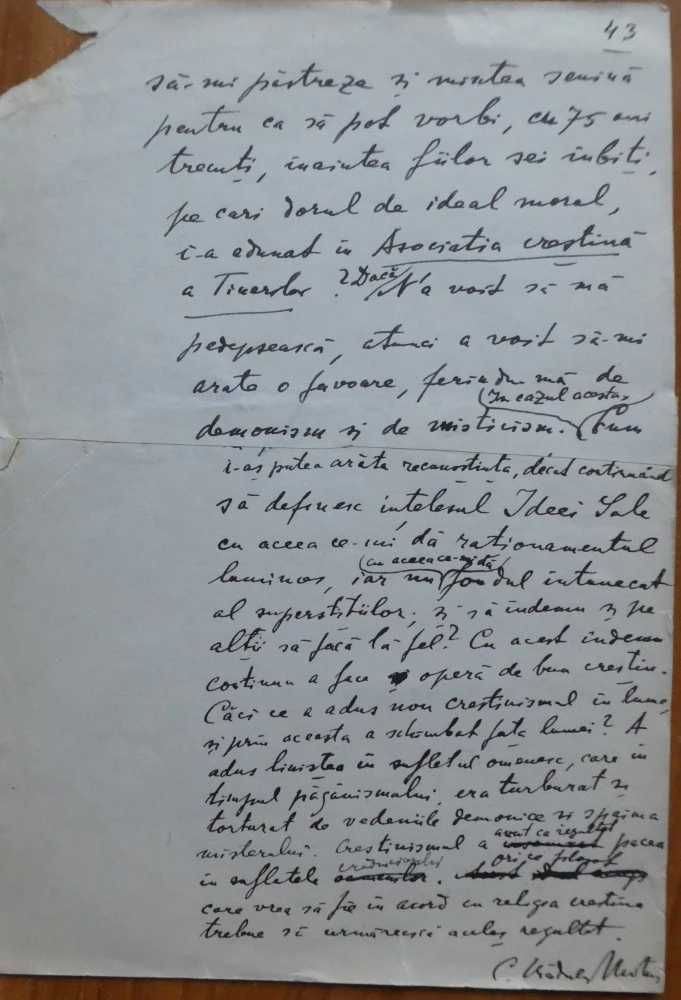 43
să-mi păstreze și mintea senină
pentru ca să pot vorbi, cu 75 ani
trecuți, înaintea fiilor sei iubiți,
pe cari dorul de ideal moral,
i-a adunat în Asociatia creștină
a Tinerilor ? Dacă N'a voit să mă
pedepsească, atunci a voit să-mi
arate o favoare, ferindu-mă de
In cazul acesta,
demonism și de misticism. Cum
i-aș putea arăta recunostința, decât continuând
să definesc ințelesul Ideei Sale
cu aceea ce-mi dă raționamentul
cu aceea ce-mi dă
luminos, iar nu fondul intunecat
al superstițiilor; și să indemn și pe
alții să facă la fel? Cu acest indemn
continuu a face operă de bun creștin.
Căci ce a adus nou creștinismul în lume,
și prin aceasta a schimbat fața lumei? A
adus liniștea in sufletul omenesc, care in
timpul păgânismului, era turburat și
torturat de vedeniile demonice și spaima
avut ca rezultat
misterului. Creștinismul a pacea
credinciosului orice filosof
in sufletele .
care vrea să fie in acord cu religia crestina
trebue să urmărească acelaș rezultat.
C. Rădulescu-Motru